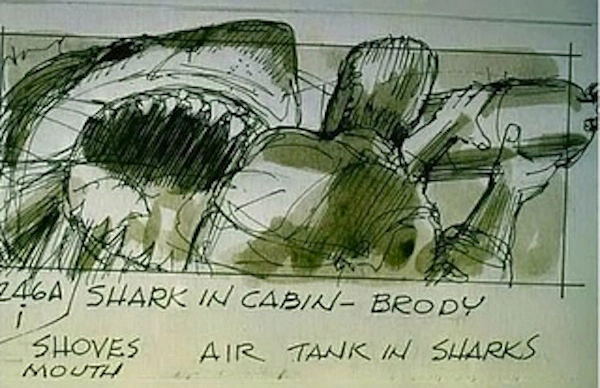 246A SHARK IN CABIN - BRODY
i
SHOVES AIR TANK IN SHARKS
MOUTH